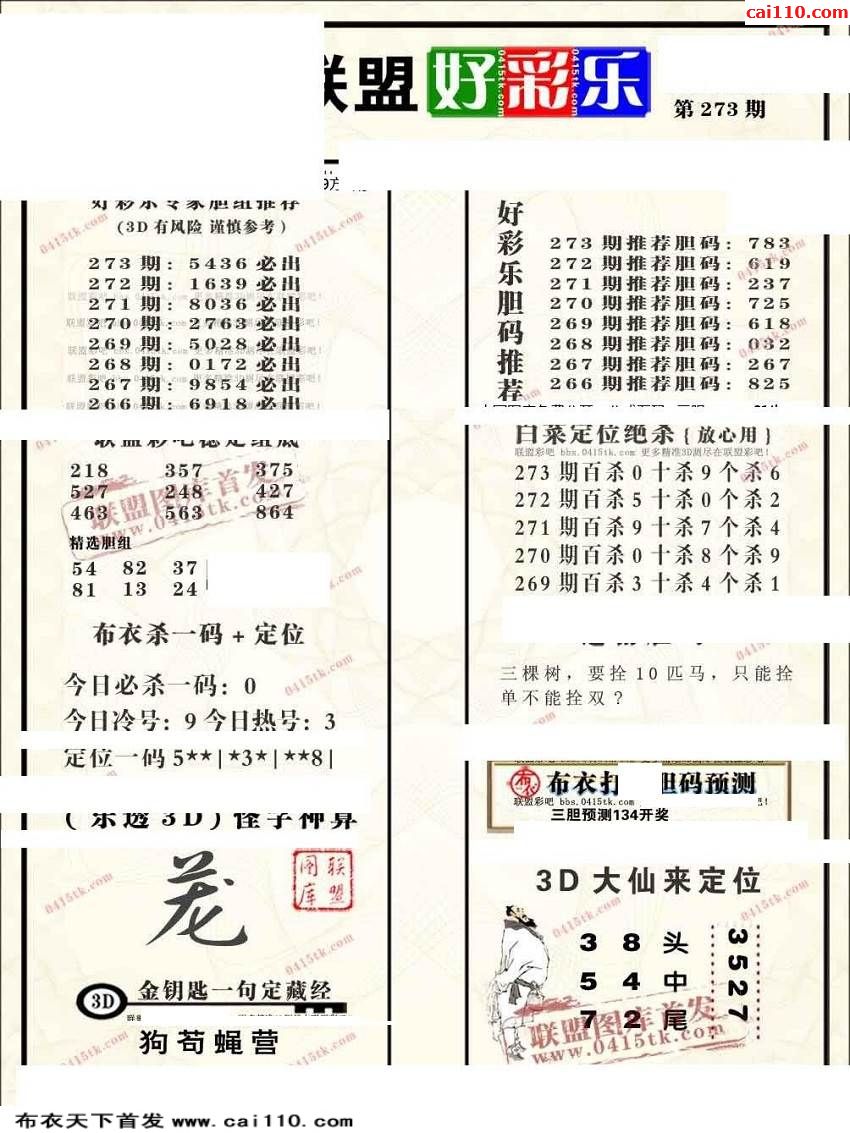 cai110.com
联盟好彩乐
第273期
好彩乐专家胆组推荐
(3D有风险 谨慎参考)
273期: 5436必出
272期: 1639必出
271期: 8036必出
270期: 2763必出
269期: 5028必出
268期: 0172必出
267期: 9854必出
266期: 6918必出
218 357 375
527 248 427
463 563 864
精选胆组
54 82 37
81 13 24
布衣杀一码+定位
今日必杀一码: 0
今日冷号: 9 今日热号: 3
定位一码5**|*3*|**8|
(乐透3D)怪字神算
联盟图库
3D 金钥匙一句定藏经
狗苟蝇营
好彩乐胆码推荐
273期推荐胆码: 783
272期推荐胆码: 619
271期推荐胆码: 237
270期推荐胆码: 725
269期推荐胆码: 618
268期推荐胆码: 032
267期推荐胆码: 267
266期推荐胆码: 825
白菜定位绝杀{放心用}
联盟彩吧 bbs.0415tk.com 更多精准3D测尽在联盟彩吧!
273期百杀0十杀9个杀6
272期百杀5十杀0个杀2
271期百杀9十杀7个杀4
270期百杀0十杀8个杀9
269期百杀3十杀4个杀1
三棵树，要拴10匹马，只能拴
单不能拴双？
布衣打 胆码预测
联盟彩吧 bbs.0415tk.com
三胆预测134开奖
3D大仙来定位
3 8 头
5 4 中
7 2 尾
3527
联盟图库首发
www.0415tk.com
布衣天下首发www.cai110.com